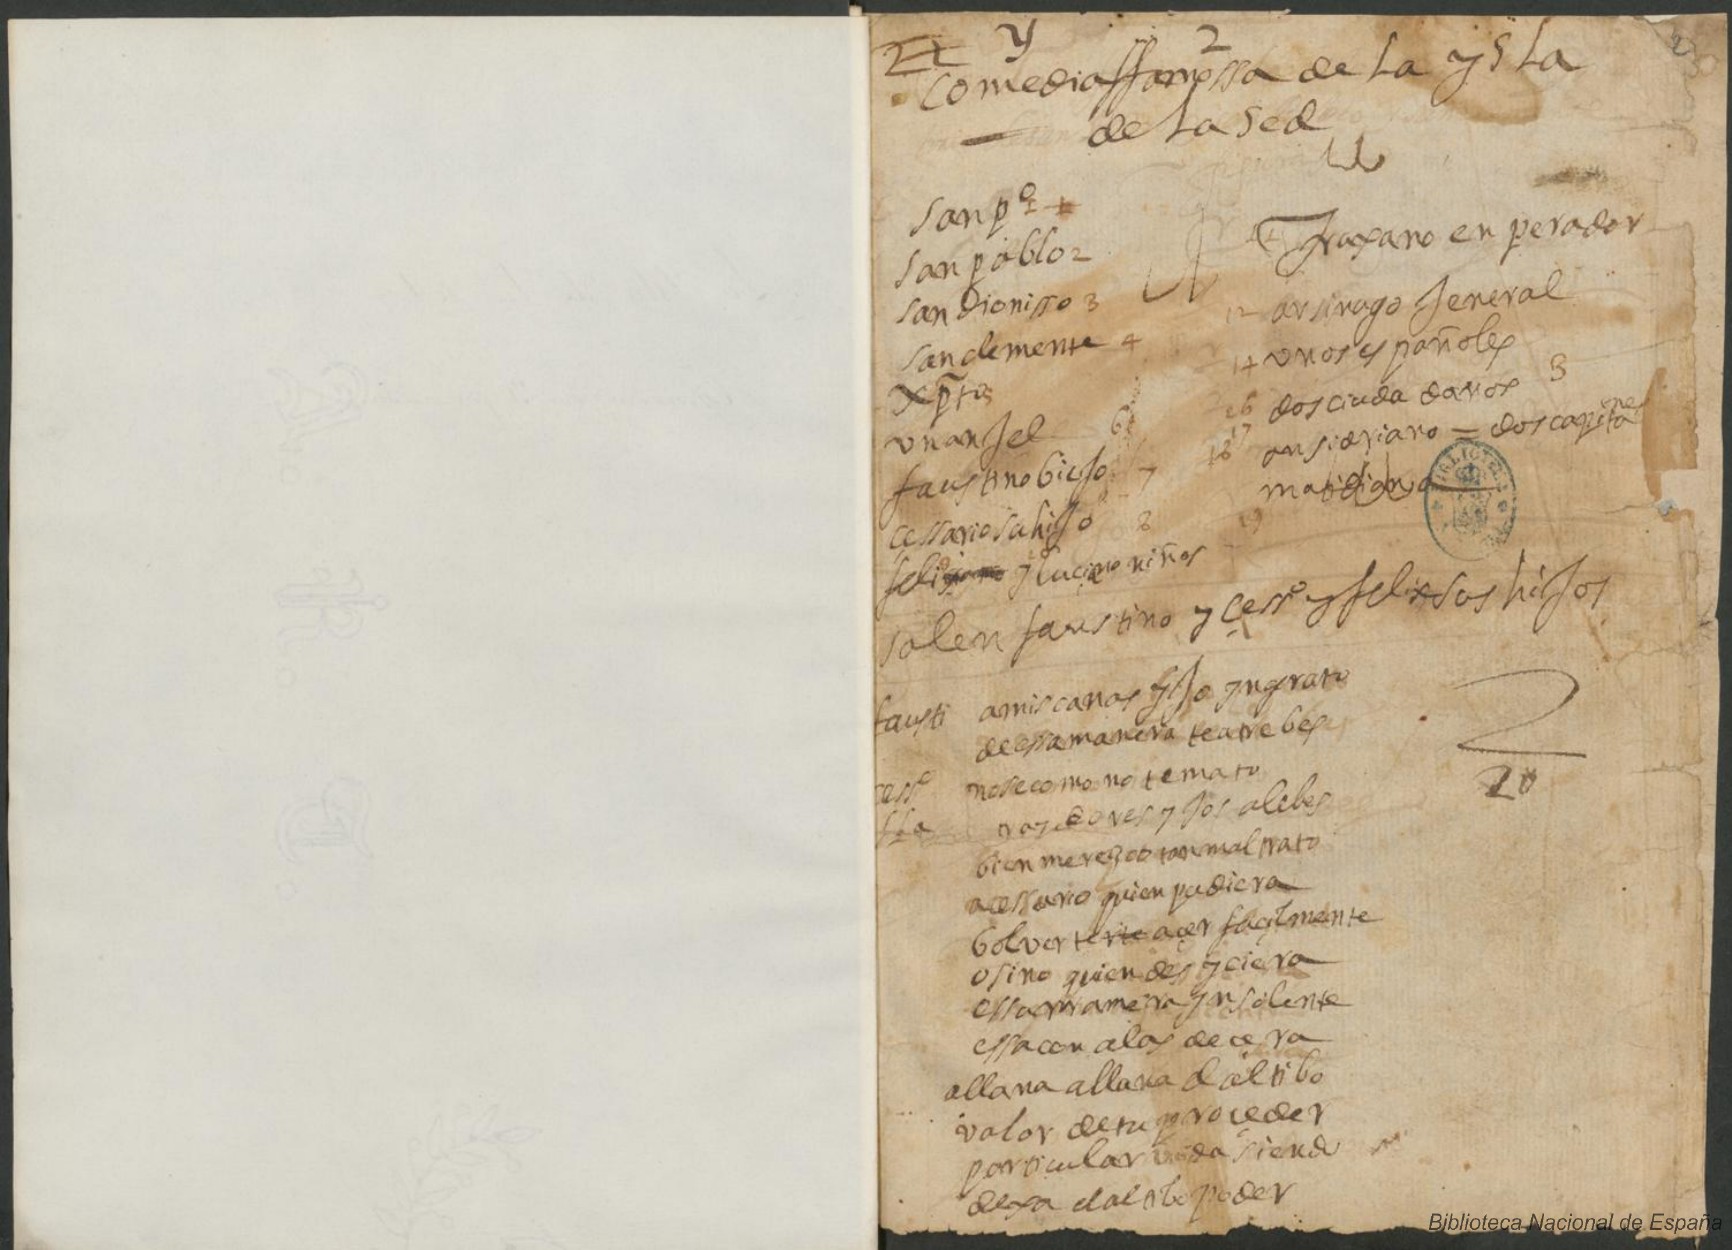 y 2
comedia ffamossa de la ysla
de la sed
san pº 1
san pablo 2
san dionisso 3
san clemente 4
xpto
un anJel 6
faustino bieJo 7
cessario su hiJo 8
feli y lucino niños
TraJano enperador
12 arsinago Jeneral
14 unos españoles
16 dos ciudadanos 3
17
18 dos capitanes
matidiana
19
salen faustino y cessº y felix sus hiJos
fausti a mis canas yJo yngrato
de essa manera te atrebes
cessº no se como no te mato
traydores yJos alebes
bien merezco tan mal trato
a cessario quien pudiera
bolverte a çer facilmente
o si no quien desyciera
essa rramera ynsolente
essa con alas de cera
allana allana el altibo
valor de tu proceder
particular
dexa el altibo poder
2
20
Biblioteca Nacional de España